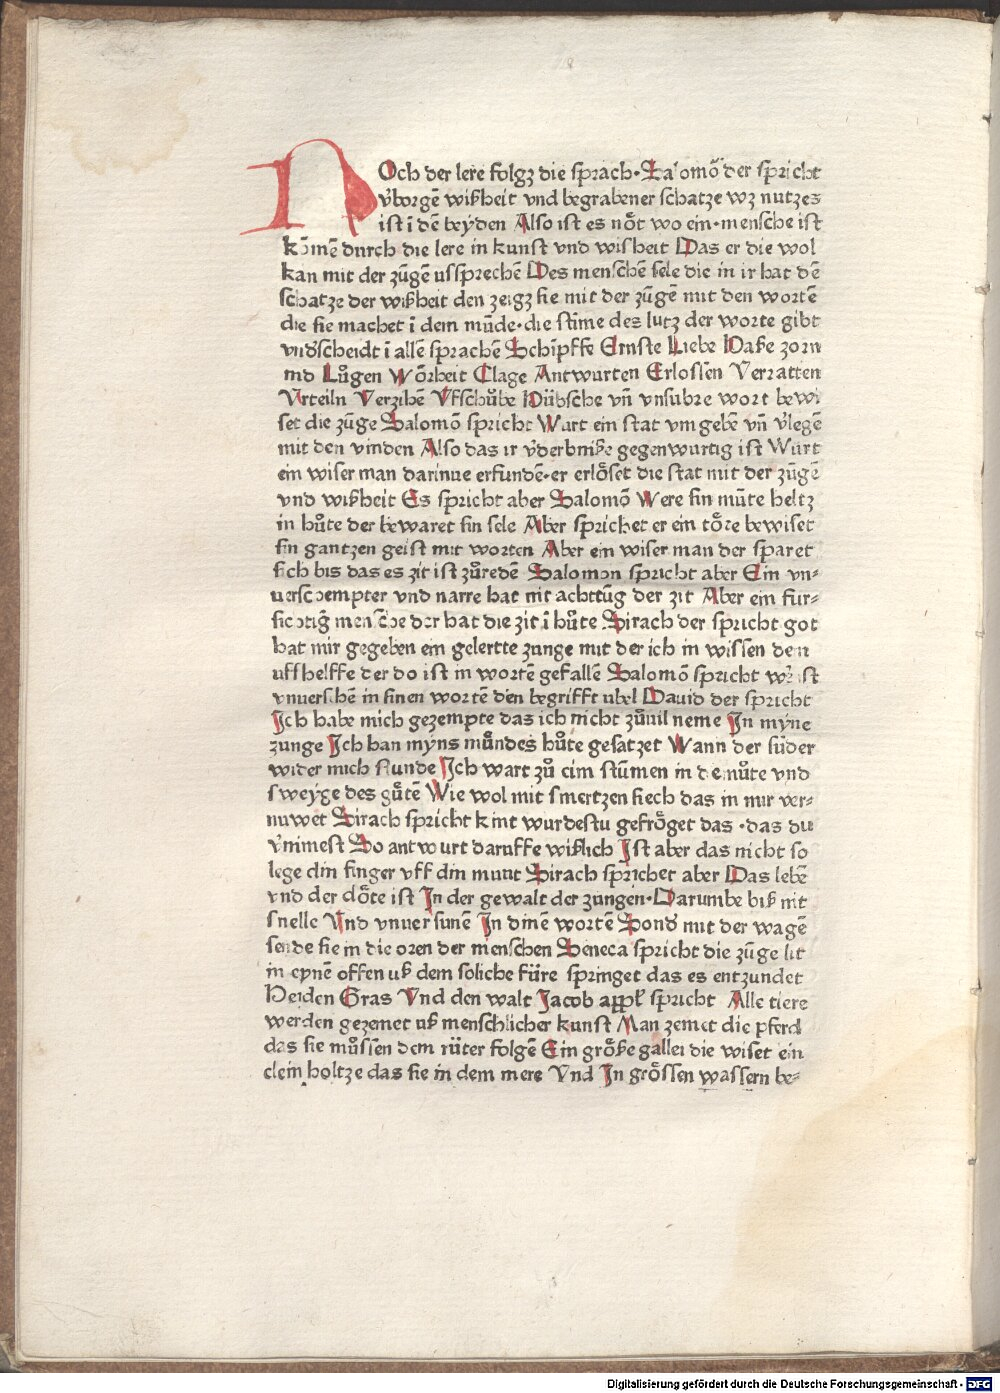 NOch der lere folgꝫ die sprach·Salomō der spricht
v̓borgē wißheit vnd begrabener schatze wꝫ nutzes
ist ī dē beyden Also ist es nöt wo ein·mensche ist
kōmē durch die lere in kunst vnd wisheit Das er die wol
kan mit der zūgē vssprechē Des menschē sele die in ir hat dē
schatze der wißheit den zeigꝫ sie mit der zūgē mit den wortē
die sie machet ī dem mūde·die stīme des lutz der worte gibt
vndscheidt ī allē sprachē Schīpffe Ernste Liebe Haße zorn
vnd Lůgen Wōrheit Clage Antwurten Erlossen Verratten
Vrteiln Verzihē Vfschůbe Hübsche vn̄ vnsubre wort bewi
set die zūge Salomō spricht Wart ein stat vmgebē vn̄ v̓legē
mit den vinden Also das ir v̓derbniße gegenwurtig ist Wurt
ein wiser man darinne erfundē·er erlöset die stat mit der zūgē
vnd wißheit Es spricht aber Salomō Were sin mūte heltz
in hůte der bewaret sin sele Aber sprichet er ein töre bewiset
sin gantzen geist mit worten Aber ein wiser man der sparet
sich bis das es zit ist zůredē Salomon spricht aber Ein vn-
verschempter vnd narre hat nit achttūg der zit Aber ein fur-
sichtiḡ mensche der hat die zit ī hůte Sirach der spricht got
hat mir gegeben ein gelertte zunge mit der ich in wissen den
uffhelffe der do ist in wortē gefallē Salomō spricht ist
vnuersehē in sinen wortē den begrifft ubel Dauid der spricht
Ich habe mich gezempte das ich nicht zůuil neme In myne
zunge Ich han myns můndes hůte gesatzet Wann der sūder
wider mich stunde Ich wart zů eim stūmen in demůte vnd
sweyge des gůtē Wie wol mit smertzen siech das in mir ver-
nuwet Sirach spricht kint wurdestu gefröget das·das du
v̓nimest So antwurt daruffe wißlich Ist aber das nicht so
lege din finger vff din munt Sirach sprichet aber Das lebē
vnd der döte ist In der gewalt der zungen·Darumbe biß nit
snelle Vnd vnuersunē In dinē wortē Sond̓ mit der wagē
sende sie in die oren der menschen Seneca spricht die zūge lit
in eynē offen uß dem soliche füre springet das es entzundet
Heiden Gras Vnd den walt Jacob appł spricht Alle tiere
werden gezemet uß menschlicher kunst Man zemet die pferd
das sie můssen dem rüter folgē Ein größe gallei die wiset ein
clein holtze das sie in dem mere Vnd In grössen wassern be-
Digitalisierung gefördert durch die Deutsche Forschungsgemeinschaft - DFG